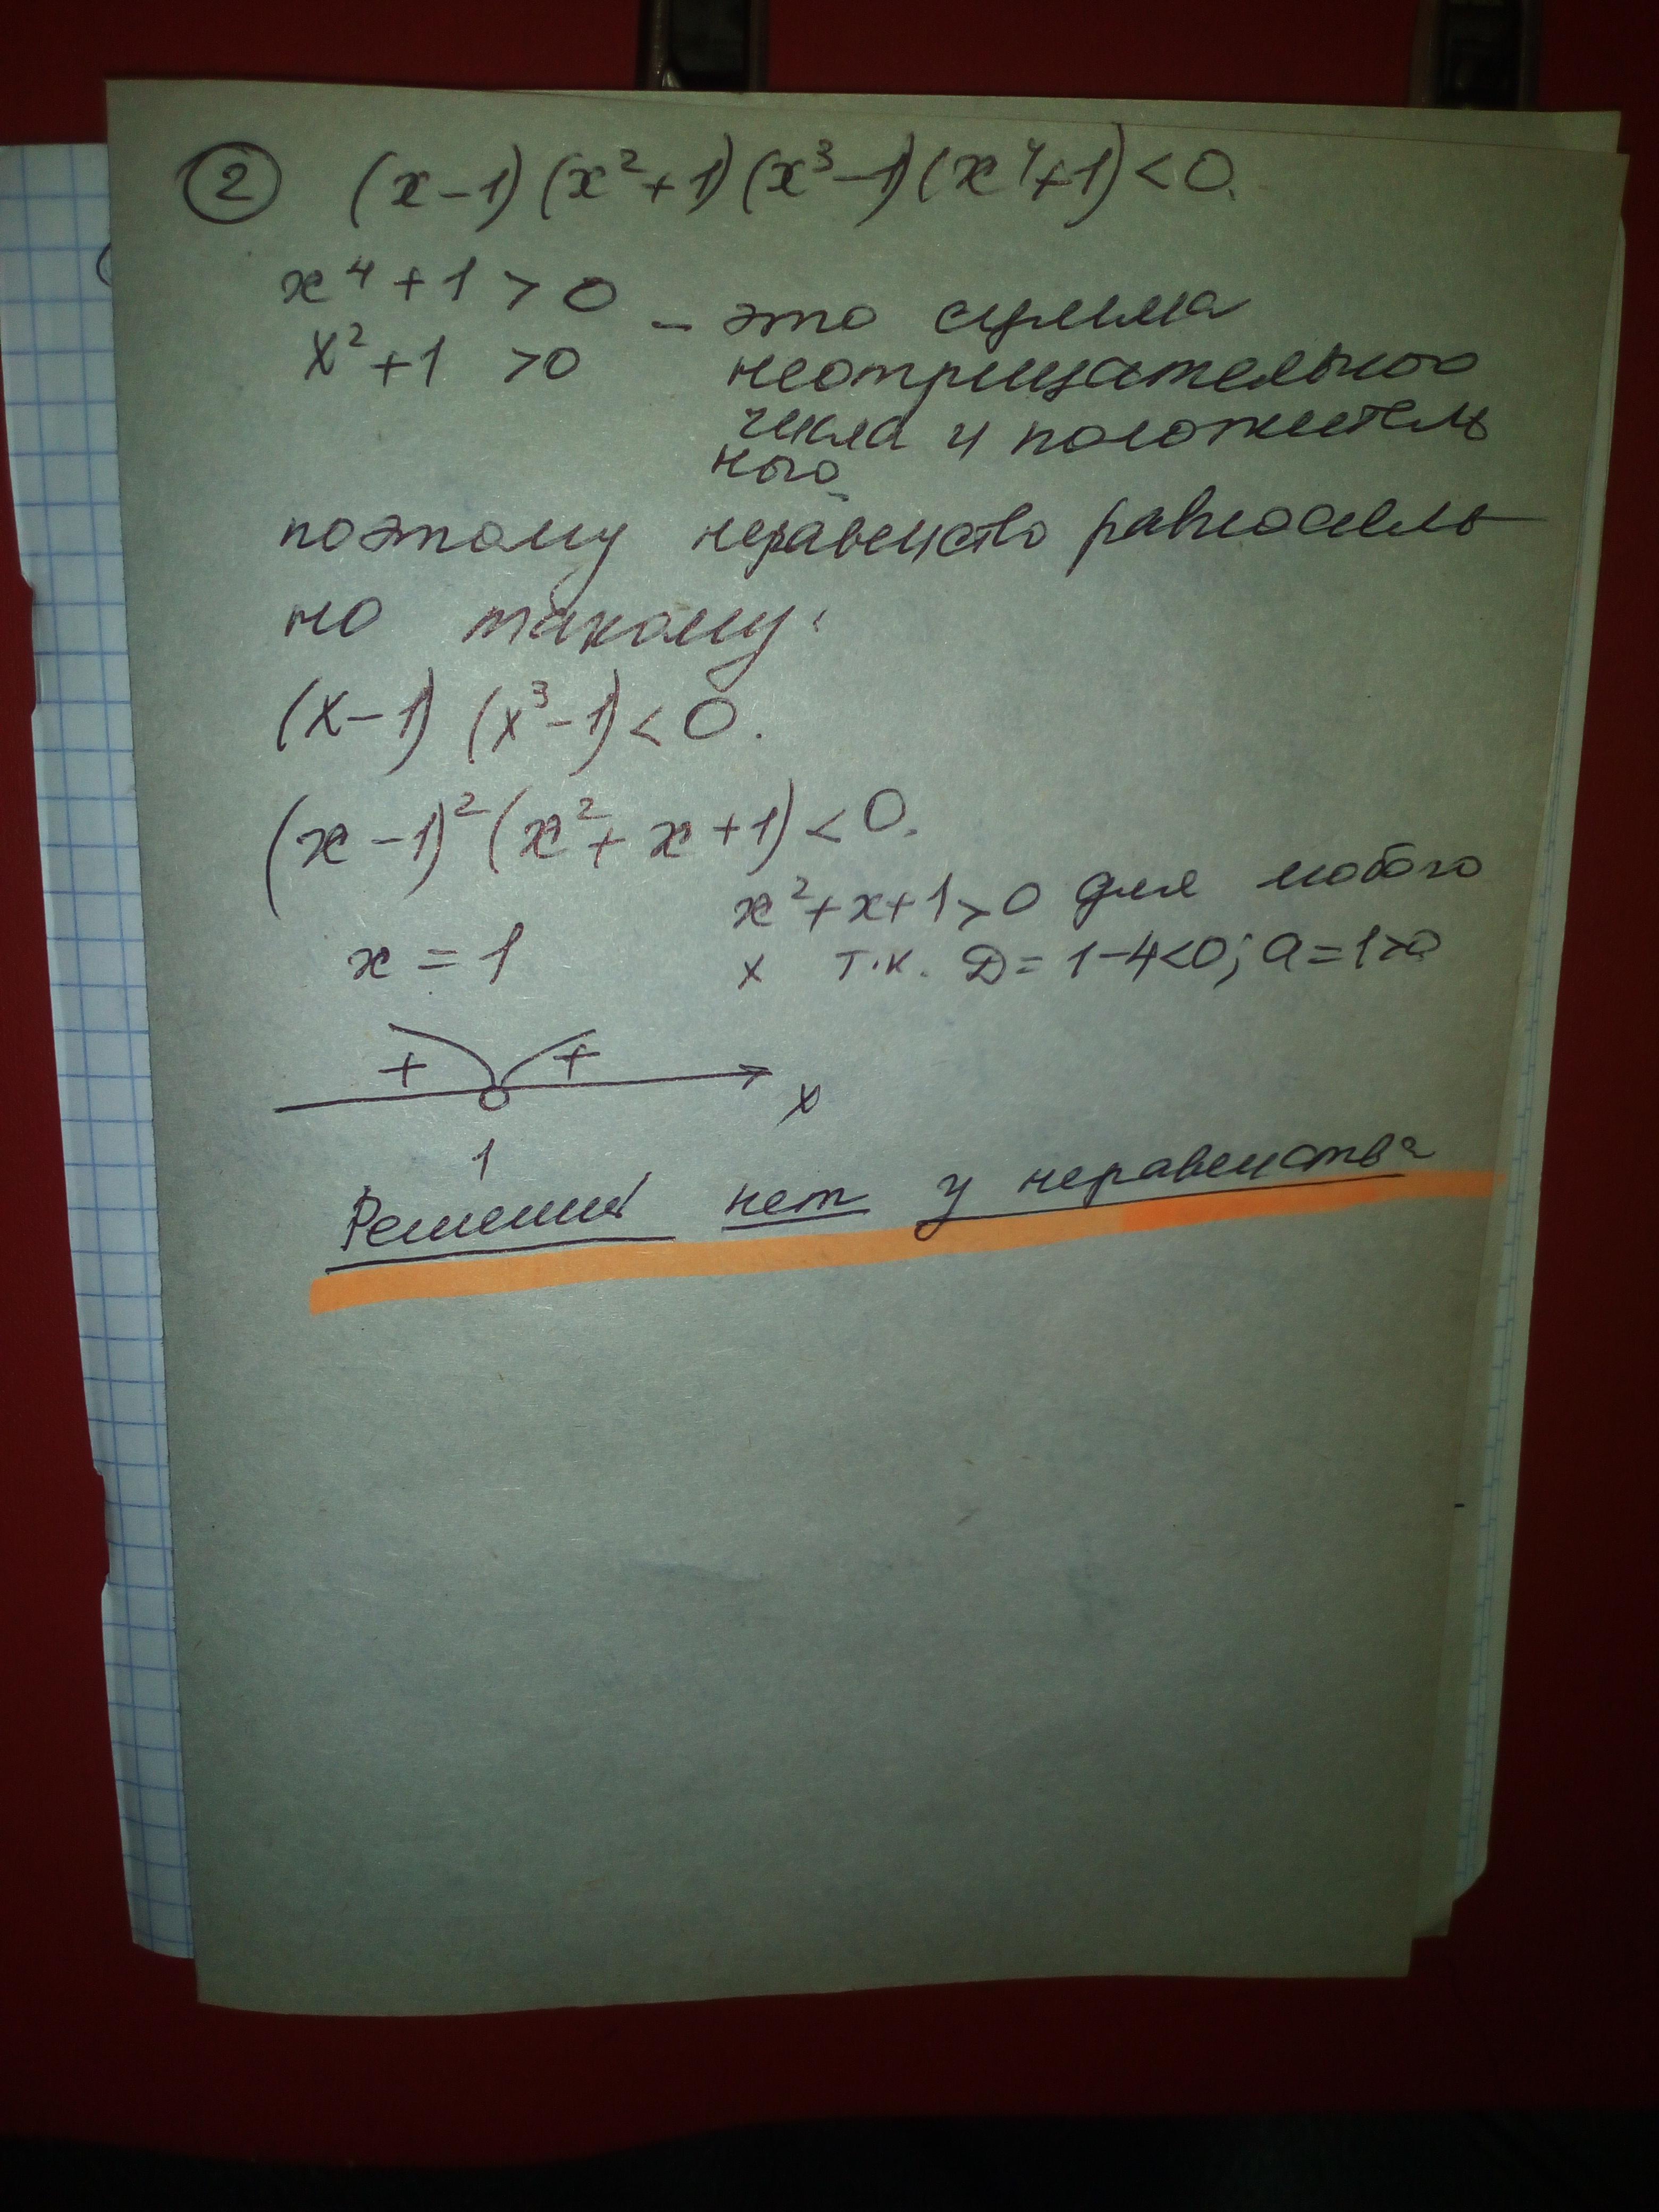 ② (x-1)(x²+1)(x³-1)(x⁴+1)<0.
x⁴+1>0
x²+1>0
- это сумма
неотрицательного
числа и положитель
ного
поэтому неравенство равносиль
но такому:
(x-1)(x³-1)<0.
(x-1)²(x²+x+1)<0.
x=1
x²+x+1>0 для любого
x т.к. D=1-4<0; a=1>0
+ +
x
1
Решений нет у неравенства